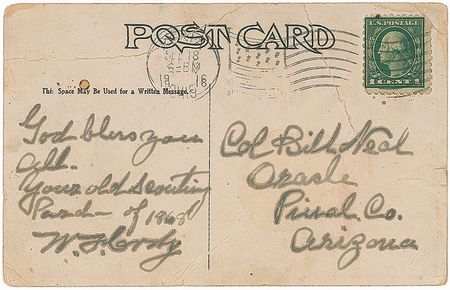 POST CARD
U.S. POSTAGE
1 CENT 1
The Space May Be Used for a Written Message.
God bless you
all.
Your old Scouting
Pard - of 1868
W. F. Cody
Col Bill Neal
Oracle
Pinal. Co.
Arizona